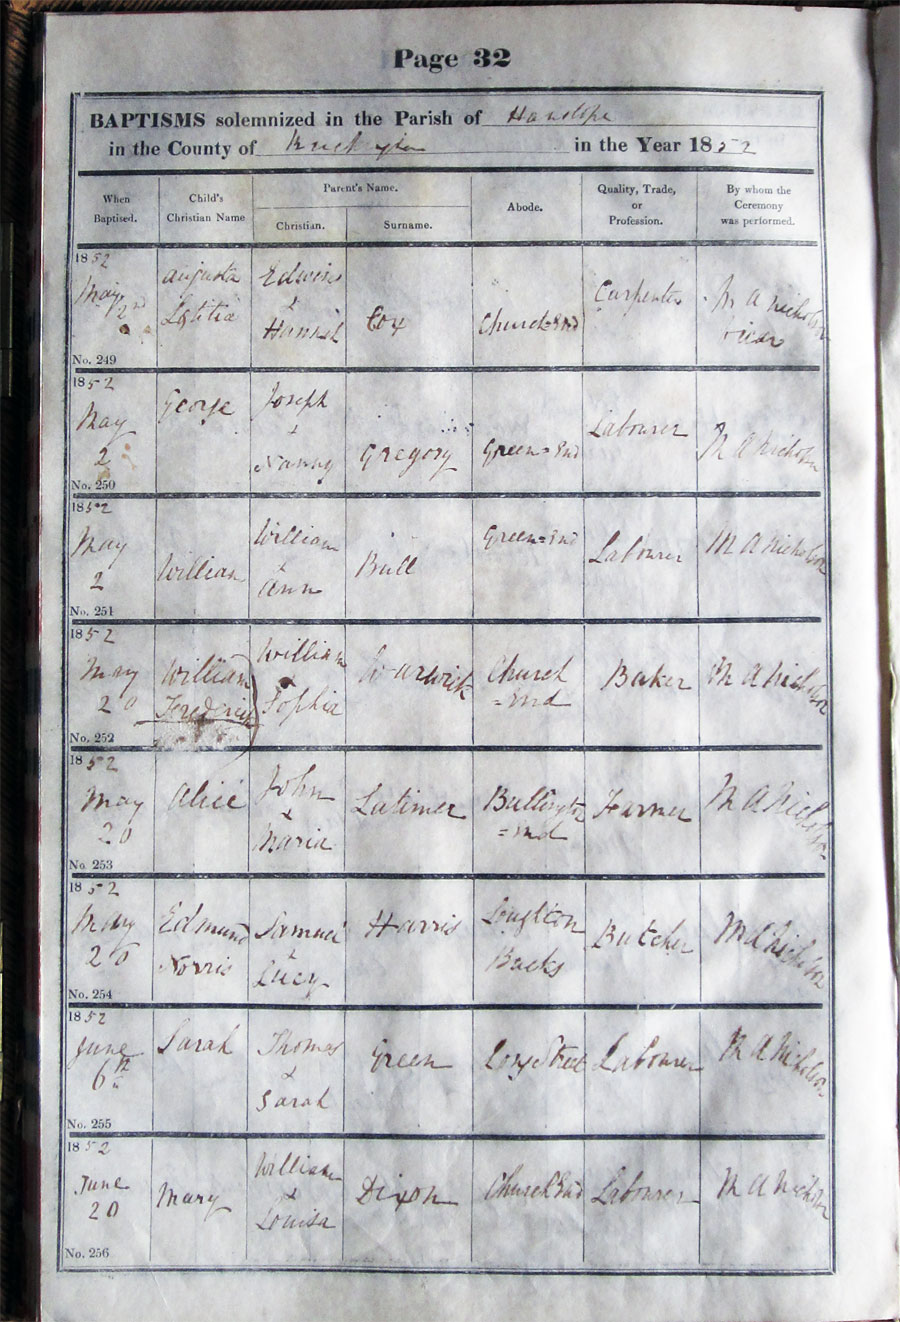 Page 32
BAPTISMS solemnized in the Parish of Hanslope
in the County of Buckingham in the Year 1852
When
Baptised.
Child's
Christian Name
Parent's Name.
Christian.
Surname.
Abode.
Quality, Trade,
or
Profession.
By whom the
Ceremony
was performed.
1852
May
2nd
No. 249
Augusta
Letitia
Edwin
&
Hannah
Cox
Church End
Carpenter
M A Nicholson
vicar
1852
May
2
No. 250
George
Joseph
&
Nanny
Gregory
Green=End
Labourer
M A Nicholson
1852
May
2
No. 251
William
William
&
Ann
Bull
Green=End
Labourer
M A Nicholson
1852
May
20
No. 252
William
Frederick
William
&
Sophia
Warwick
Church
=End
Baker
M A Nicholson
1852
May
20
No. 253
Alice
John
&
Maria
Latimer
Bullington
=End
Farmer
M A Nicholson
1852
May
20
No. 254
Edmund
Norris
Samuel
&
Lucy
Harris
Loughton
Bucks
Butcher
M A Nicholson
1852
June
6th
No. 255
Sarah
Thomas
&
Sarah
Green
Long Street
Labourer
M A Nicholson
1852
June
20
No. 256
Mary
William
&
Louisa
Dixon
Church End
Labourer
M A Nicholson